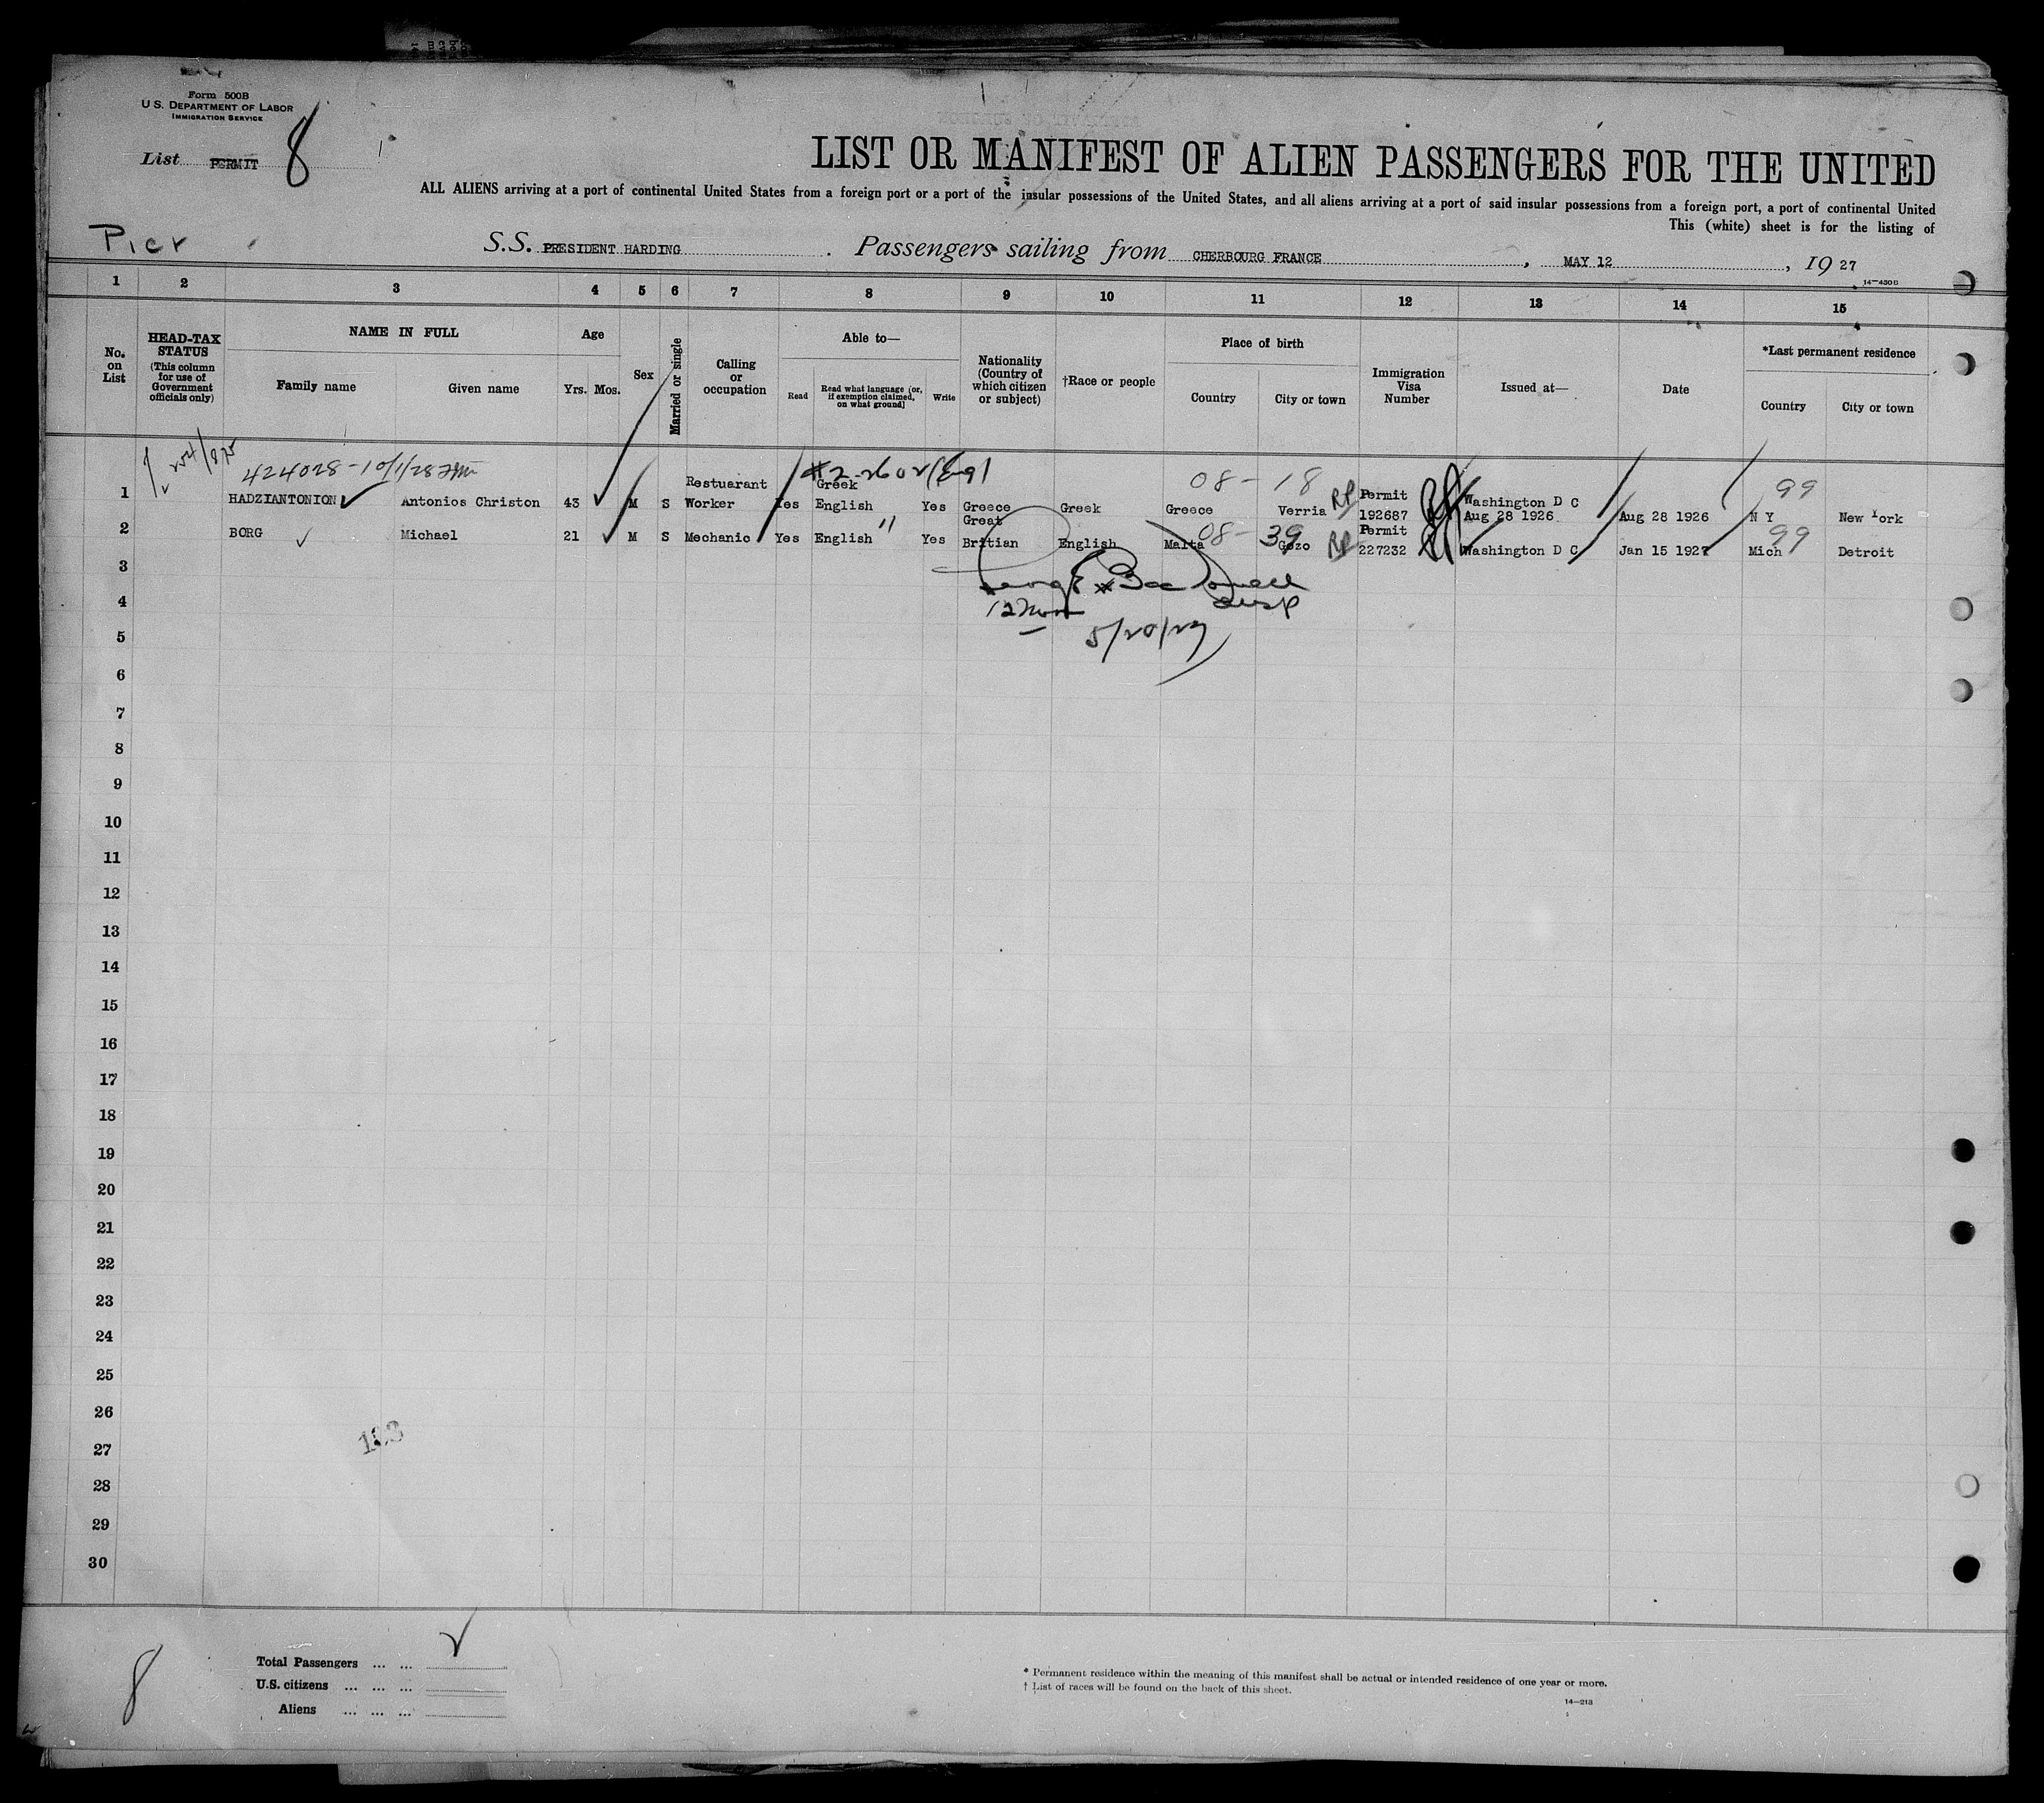 Form 500B
U.S. DEPARTMENT OF LABOR
IMMIGRATION SERVICE
List PERMIT 8
LIST OR MANIFEST OF ALIEN PASSENGERS FOR THE UNITED
ALL ALIENS arriving at a port of continental United States from a foreign port or a port of the insular possessions of the United States, and all aliens arriving at a port of said insular possessions from a foreign port, a port of continental United
This (white) sheet is for the listing of
Pier
S.S. PRESIDENT HARDING. Passengers sailing from CHERBOURG FRANCE, MAY 12, 1927
14—430B
1 2 3 4 5 6 7 8 9 10 11 12 13 14 15
No. on List
HEAD-TAX STATUS (This column for use of Government officials only)
NAME IN FULL
Family name Given name
Age
Yrs. Mos.
Sex
Married or single
Calling or occupation
Able to—
Read
Read what language [or, if exemption claimed, on what ground]
Write
Nationality (Country of which citizen or subject)
†Race or people
Place of birth
Country City or town
Immigration Visa Number
Issued at—
Date
*Last permanent residence
Country City or town
424028-10/1/28 #2-2602 (Eng) 08-18 99
1 HADZIANTONION Antonios Christon 43 M S Restuarant Worker Yes Greek English Yes Greece Greek Greece Verria RP Permit 192687 Washington D C Aug 28 1926 Aug 28 1926 N Y New York
08- 39 99
2 BORG Michael 21 M S Mechanic Yes English " Yes Great Britian English Malta Gozo RP Permit 227232 Washington D C Jan 15 1927 Mich Detroit
3
4 Insp
12 Noon
5 5/20/27
6
7
8
9
10
11
12
13
14
15
16
17
18
19
20
21
22
23
24
25
26
27
28
29
30
8
Total Passengers
U.S. citizens
Aliens
* Permanent residence within the meaning of this manifest shall be actual or intended residence of one year or more.
† List of races will be found on the back of this sheet.
14—213